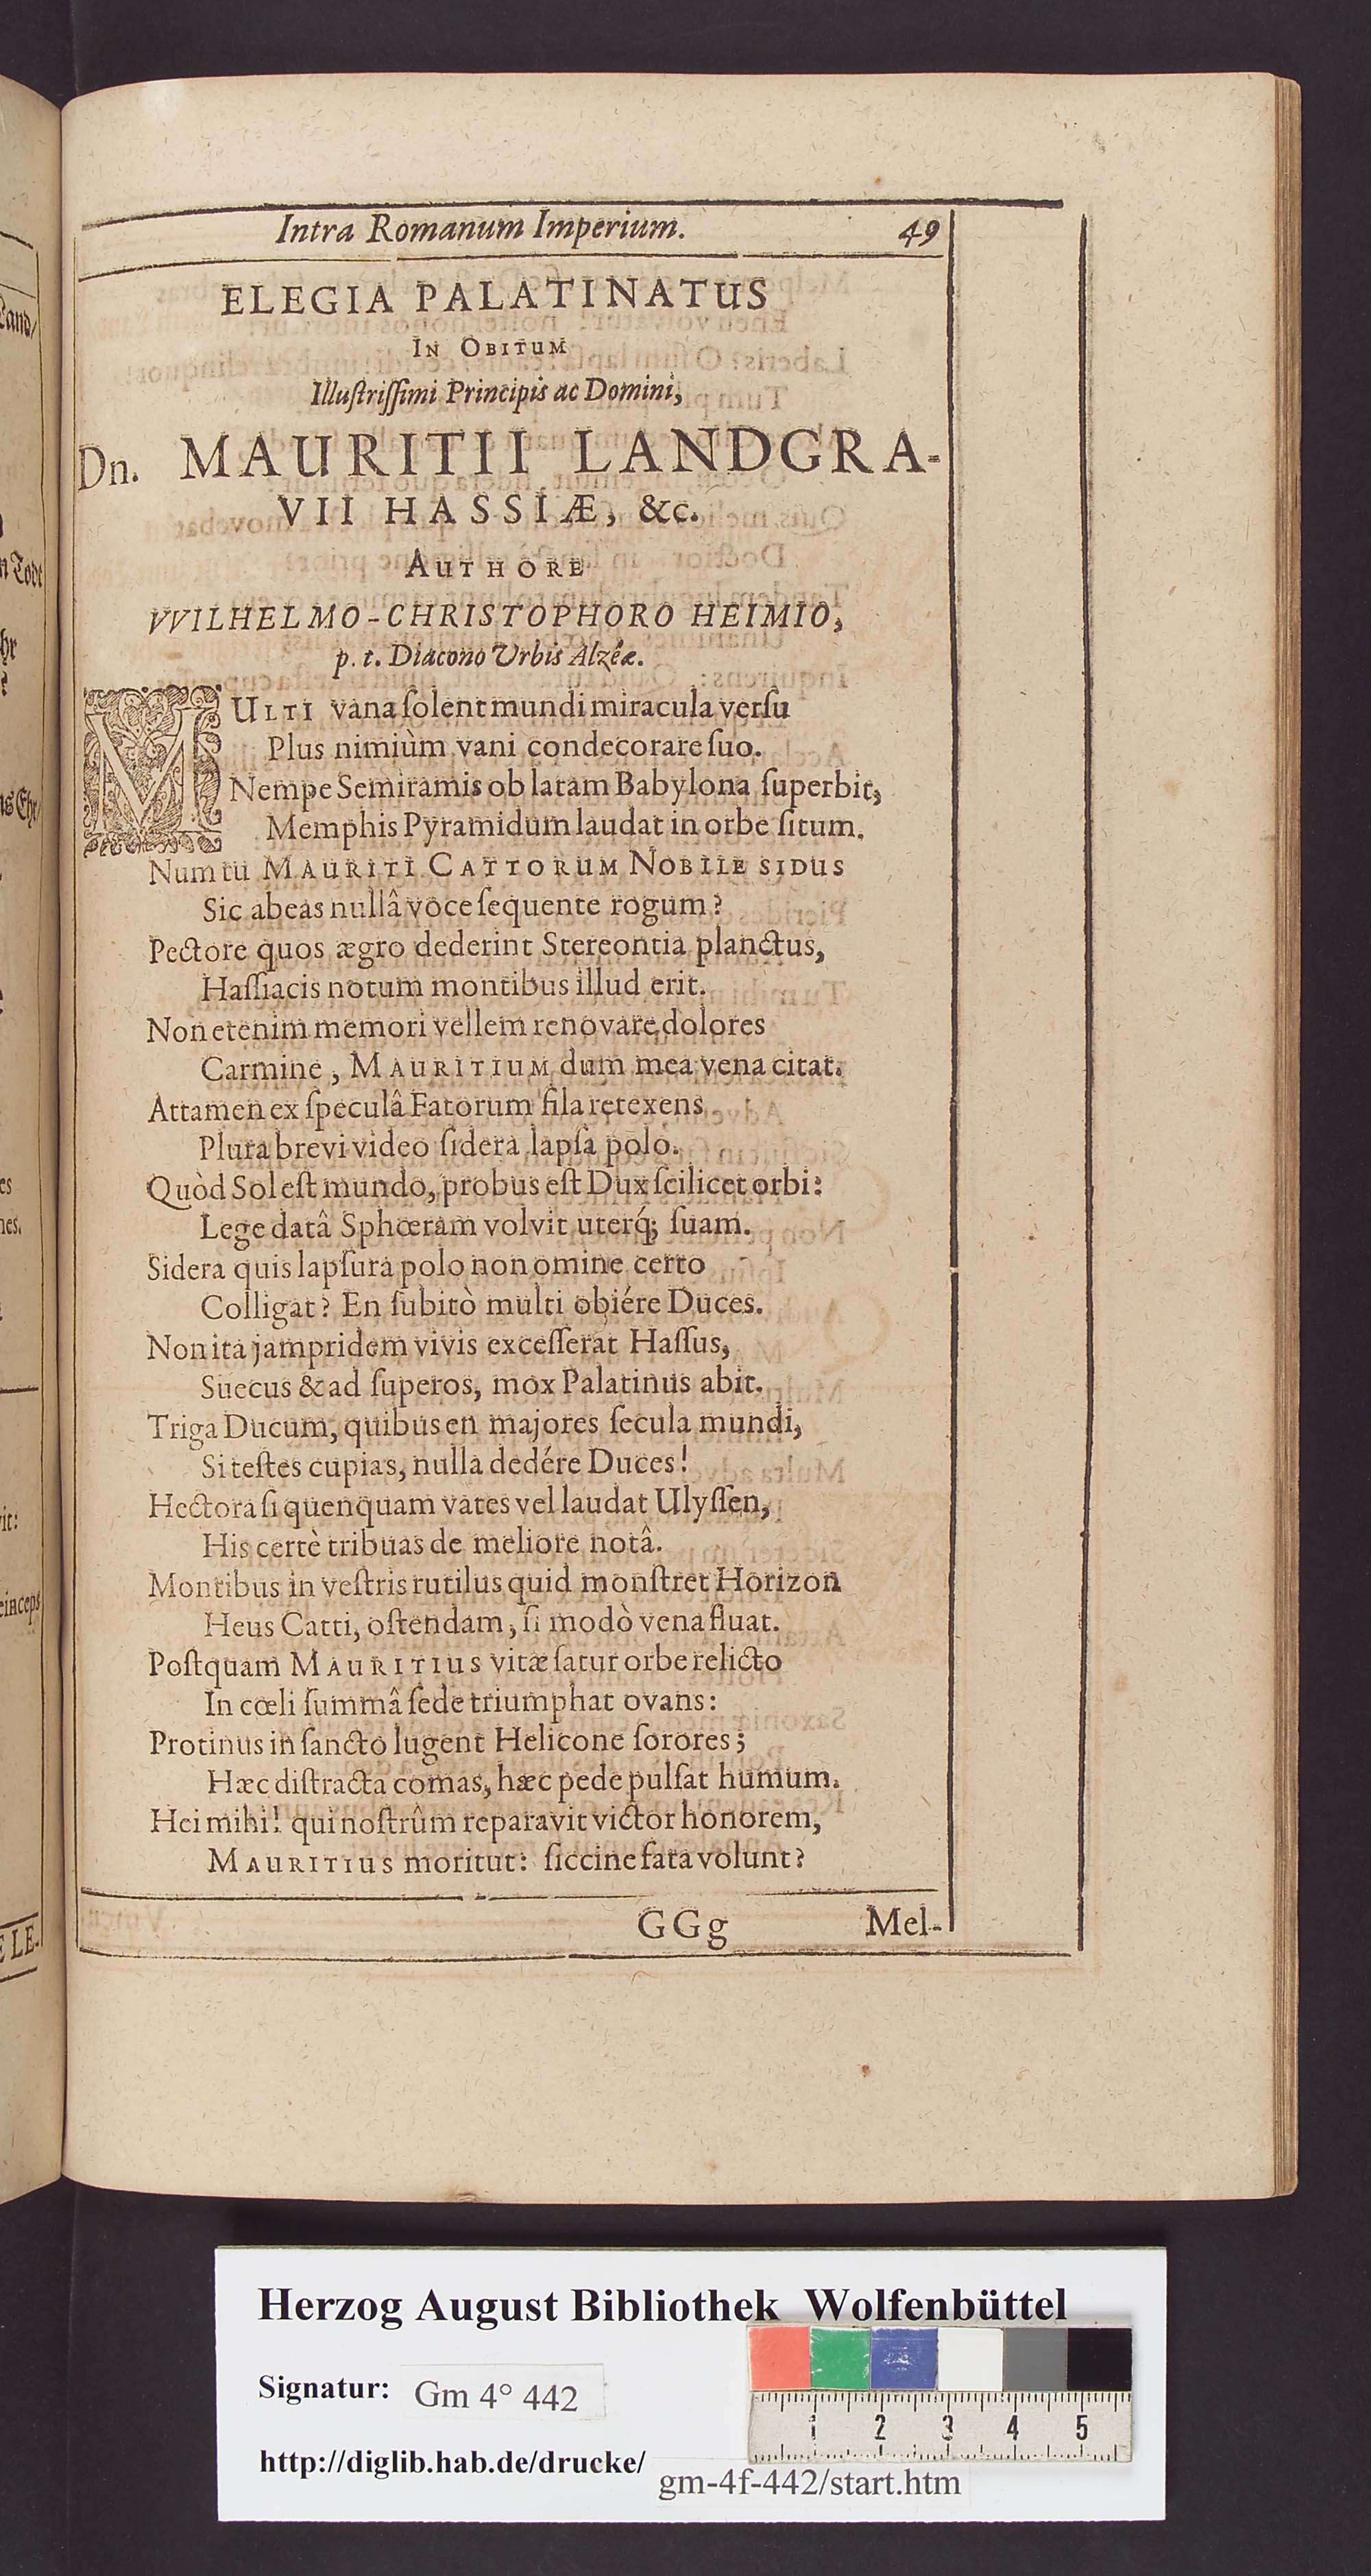 Intra Romanum Imperium. 49
ELEGIA PALATINATUS
IN OBITUM
Illuſtriſſimi Principis ac Domini,
Dn. MAURITII LANDGRA-
VII HASSIÆ, &c.
AUTHORE
VVILHELMO-CHRISTOPHORO HEIMIO,
p. t. Diacono Urbis Alzêæ.
MULTI vana ſolent mundi miracula verſu
Plus nimiùm vani condecorare ſuo.
Nempe Semiramis ob latam Babylona ſuperbit,
Memphis Pyramidum laudat in orbe ſitum.
Num tu MAURITI CATTORUM NOBILE SIDUS
Sic abeas nullâ voce ſequente rogum?
Pectore quos ægro dederint Stereontia planctus,
Haſſiacis notum montibus illud erit.
Non etenim memori vellem renovare dolores
Carmine, MAURITIUM dum mea vena citat.
Attamen ex ſpeculâ Fatorum fila retexens
Plura brevi video ſidera lapſa polo.
Quòd Sol eſt mundo, probus eſt Dux ſcilicet orbi:
Lege datâ Sphœram volvit uterq́; ſuam.
Sidera quis lapſura polo non omine certo
Colligat? En ſubitò multi obiére Duces.
Non ita jampridem vivis exceſſerat Haſſus,
Suecus & ad ſuperos, mox Palatinus abit.
Triga Ducum, quibus en majores ſecula mundi,
Si teſtes cupias, nulla dedére Duces!
Hectora ſi quenquam vates vel laudat Ulyſſen,
His certè tribuas de meliore notâ.
Montibus in veſtris rutilus quid monſtret Horizon
Heus Catti, oſtendam, ſi modò vena fluat.
Poſtquam MAURITIUS vitæ ſatur orbe relicto
In cœli ſummâ ſede triumphat ovans:
Protinus in ſancto lugent Helicone ſorores;
Hæc diſtracta comas, hæc pede pulſat humum.
Hei mihi! qui noſtrûm reparavit victor honorem,
MAURITIUS moritut: ſiccine fata volunt?
GGg Mel-
Herzog August Bibliothek Wolfenbüttel
Signatur: Gm 4° 442
http://diglib.hab.de/drucke/ gm-4f-442/start.htm
1 2 3 4 5